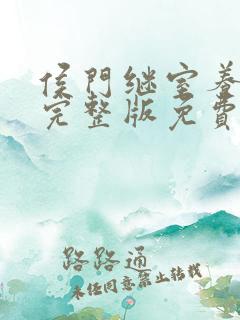 侯門継室养
完整版免費
路路通
未经同意禁止转载